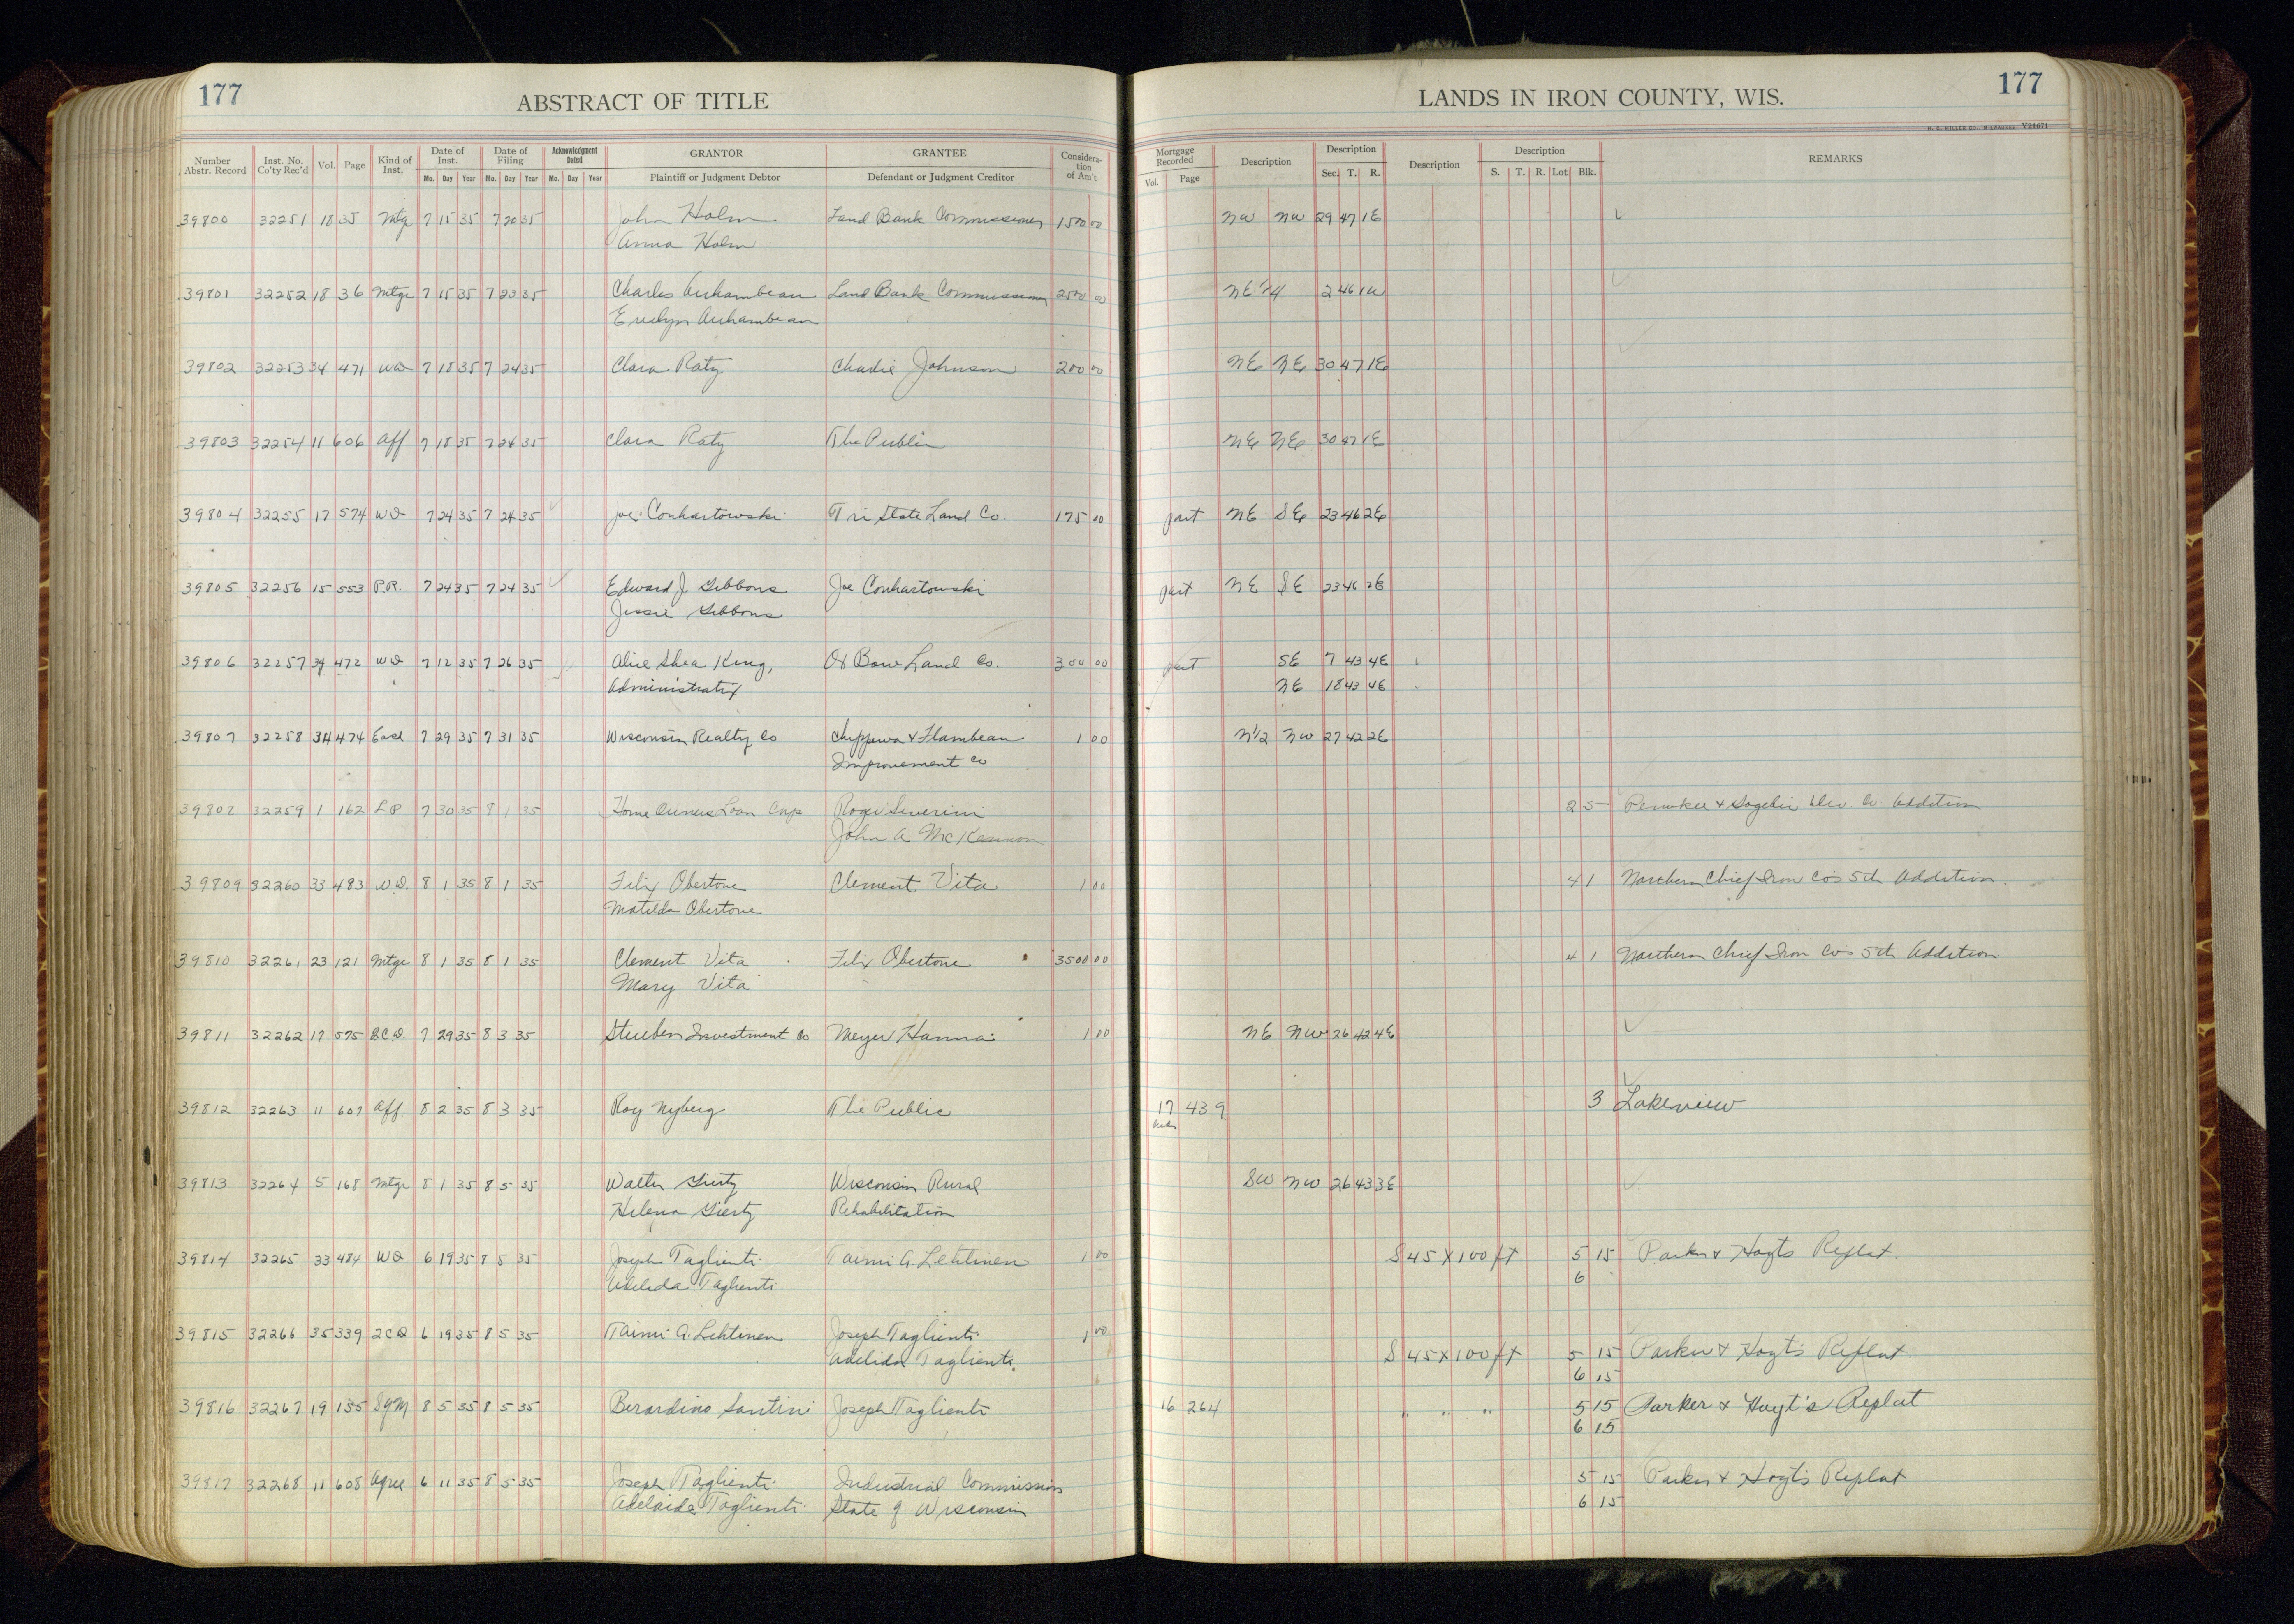 177
ABSTRACT OF TITLE
LANDS IN IRON COUNTY, WIS.
177
H. C. MILLER CO., MILWAUKEE V21671
Number Abstr. Record Inst. No. Co'ty Rec'd Vol. Page Kind of Inst. Date of Inst. Mo. Day Year Date of Filing Mo. Day Year Acknowledgment Dated Mo. Day Year GRANTOR Plaintiff or Judgment Debtor GRANTEE Defendant or Judgment Creditor Considera-tion of Am't Mortgage Recorded Vol. Page Description Description Sec. T. R. Description Description S. T. R. Lot Blk. REMARKS
39800 32251 18 35 Mtg 7 15 35 7 20 35 John Holm Land Bank Commissioner 1500 00 NW NW 29 47 1E
Anna Holm
39801 32252 18 36 Mtge 7 15 35 7 23 35 Charles Archambeau Land Bank Commissioner 2500 00 NE 1/4 2 46 1W
Evelyn Archambeau
39802 32253 34 471 WD 7 18 35 7 24 35 Clara Raty Charlie Johnson 200 00 NE NE 30 47 1E
39803 32254 11 606 Aff 7 18 35 7 24 35 Clara Raty The Public NE NE 30 47 1E
39804 32255 17 574 WD 7 24 35 7 24 35 Joe Conhartowski Tri State Land Co. 175 00 part NE SE 23 46 2E
39805 32256 15 553 P.R. 7 24 35 7 24 35 Edward J. Gibbons Joe Conhartowski part NE SE 23 46 2E
Jessie Gibbons
39806 32257 34 472 WD 7 12 35 7 26 35 Alice Shea King, Ox Bow Land Co. 300 00 part SE 7 43 4E
Administratrix NE 18 43 4E
39807 32258 34 474 Ease 7 29 35 7 31 35 Wisconsin Realty Co Chippewa & Flambeau 1 00 N1/2 NW 27 42 2E
Improvement Co
39808 32259 1 162 LP 7 30 35 8 1 35 Home Owners Loan Corp Roger Severini 2 5 Penokee & Gogebic Dev. Co Addition
John A McKennon
39809 32260 33 483 W.D. 8 1 35 8 1 35 Felix Obertone Clement Vita 1 00 4 1 Northern Chief Iron Co's 5th Addition
Matilda Obertone
39810 32261 23 121 Mtge 8 1 35 8 1 35 Clement Vita Felix Obertone 3500 00 4 1 Northern Chief Iron Co's 5th Addition
Mary Vita
39811 32262 17 575 Q.C.D. 7 29 35 8 3 35 Steuben Investment Co Meyer Hanna 1 00 NE NW 26 42 4E
39812 32263 11 607 Aff. 8 2 35 8 3 35 Roy Nyberg The Public 17 439 3 Lakeview
39813 32264 5 168 Mtge 8 1 35 8 5 35 Walter Wisconsin Rural SW NW 26 43 3E
Helena Rehabilitation
39814 32265 33 484 WD 6 19 35 8 5 35 Joseph Taglienti Taimi A. Lehtinen 1 00 S 45 x 100 ft 5 15 Parker & Hoyts Replat
Adelida Taglienti 6
39815 32266 35 339 QCD 6 19 35 8 5 35 Taimi A. Lehtinen Joseph Taglienti 1 00 S 45 x 100 ft 5 15 Parker & Hoyt's Replat
Adelida Taglienti 6 15
39816 32267 19 135 SgM 8 5 35 8 5 35 Berardino Santini Joseph Taglienti 16 264 " " " 5 15 Parker & Hoyt's Replat
6 15
39817 32268 11 608 Agree 6 11 35 8 5 35 Joseph Taglienti Industrial Commission 5 15 Parker & Hoyt's Replat
Adelaide Taglienti State of Wisconsin 6 15